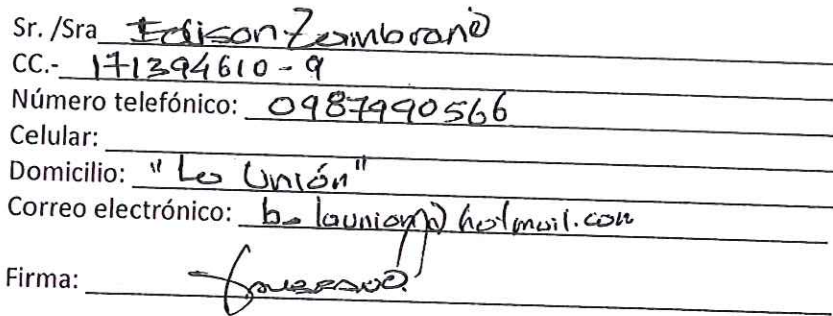 Sr. /Sra Edison Zambrano
CC.- 171394610-9
Número telefónico: 0987990566
Celular:
Domicilio: "La Unión"
Correo electrónico: b_launion@hotmail.com
Firma: